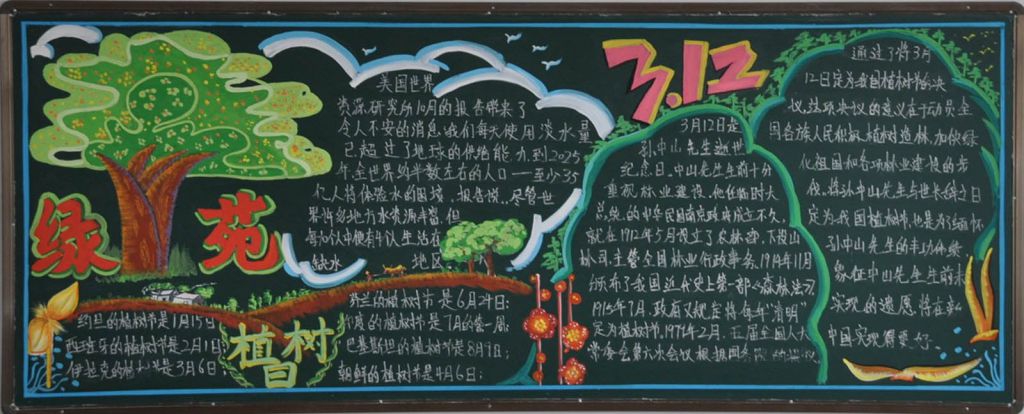 绿苑
美国世界
资源研究所10月的报告带来了
令人不安的消息:我们每天使用淡水量
已超过了地球的供给能力,到2025
年,全世界约半数左右的人口——至少35
亿人将体验水的困境,报告说,尽管世
界许多地方水资源丰富,但
每4人中便有1人生活在
缺水 地区。
植树
日
约旦的植树节是1月15日
西班牙的植树节是2月1日
伊拉克的植树节是3月6日;
芬兰的植树节是6月24日;
印度的植树节是7月的第一周
巴基斯坦的植树节是8月9日;
朝鲜的植树节是4月6日;
3.12
3月12日是
孙中山先生逝世
纪念日,中山先生生前十分
重视林业建设,他任临时大
总统的中华民国南京政府成立不久,
就在1912年5月设立了农林部,下设山
林司,主管全国林业行政事务,1914年11月
颁布了我国近代史上第一部《森林法》
1915年7月,政府又规定将每年"清明"
定为植树节,1979年2月,五届全国人大
常委会第六次会议根据国务院的提议
通过了将3月
12日定为我国植树节的决
议,这项决议的意义在于动员全
国各族人民积极植树造林,加快绿
化祖国和各项林业建设的步
伐,将孙中山先生与世长辞之日
定为我国植树节,也是为了缅怀
孙中山先生的丰功伟绩
象征中山先生生前未
实现的遗愿将在新
中国实现得更好